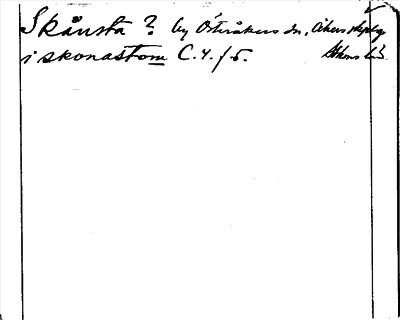 Skånsta ? by Österåkers sn, Åkers skplg
i skonastom C. 4. f 5. Sthms län